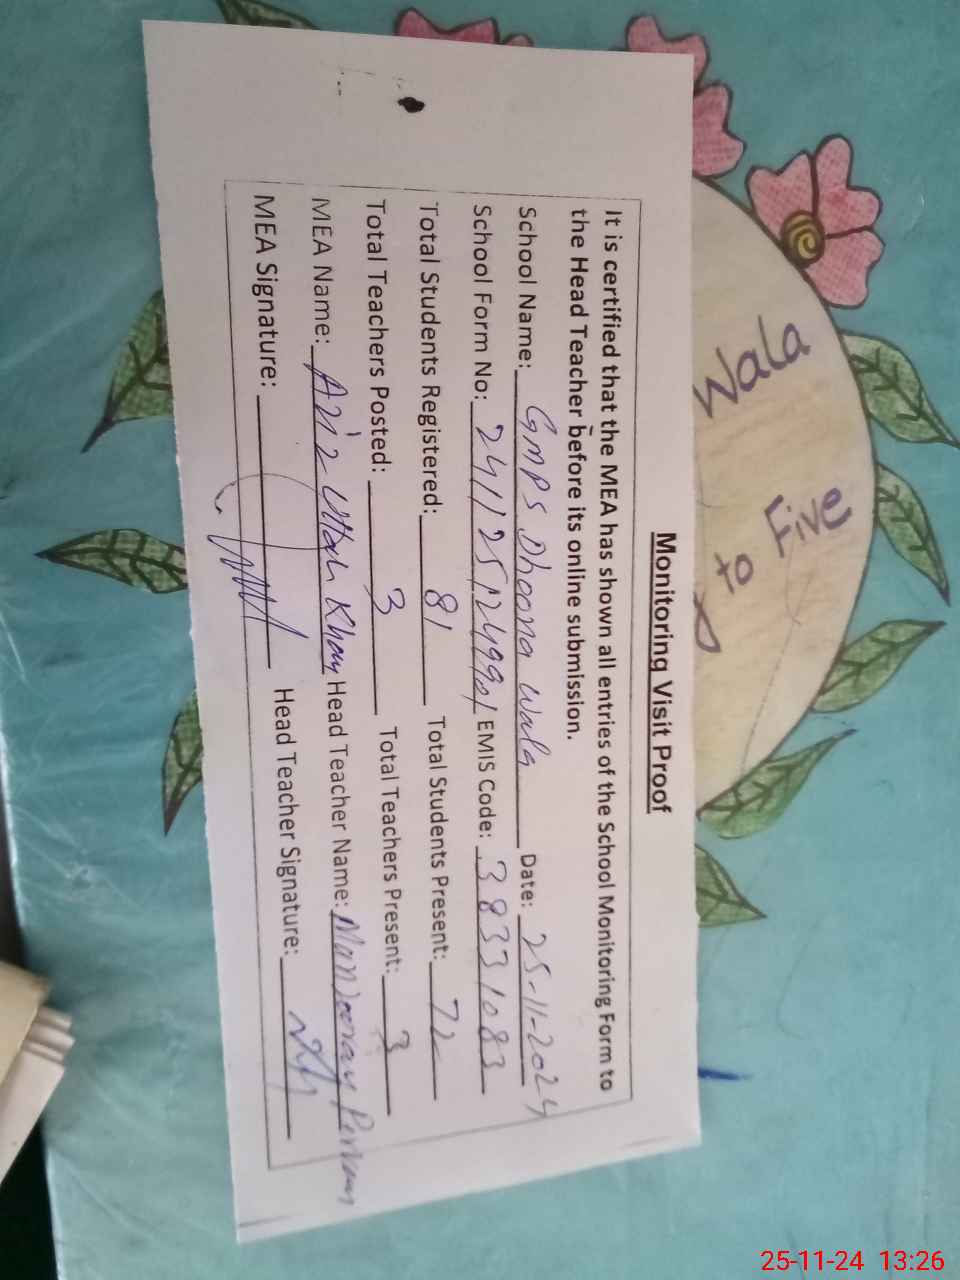 Monitoring Visit Proof
It is certified that the MEA has shown all entries of the School Monitoring Form to
the Head Teacher before its online submission.
School Name: GMPS Dhoona Wala Date: 25-11-2024
School Form No: EMIS Code: 38331083
Total Students Registered: 81 Total Students Present: 72
Total Teachers Posted: 3 Total Teachers Present: 3
MEA Name: Aziz Ullah Khan Head Teacher Name:
MEA Signature: Head Teacher Signature:
Wala
to Five
25-11-24 13:26